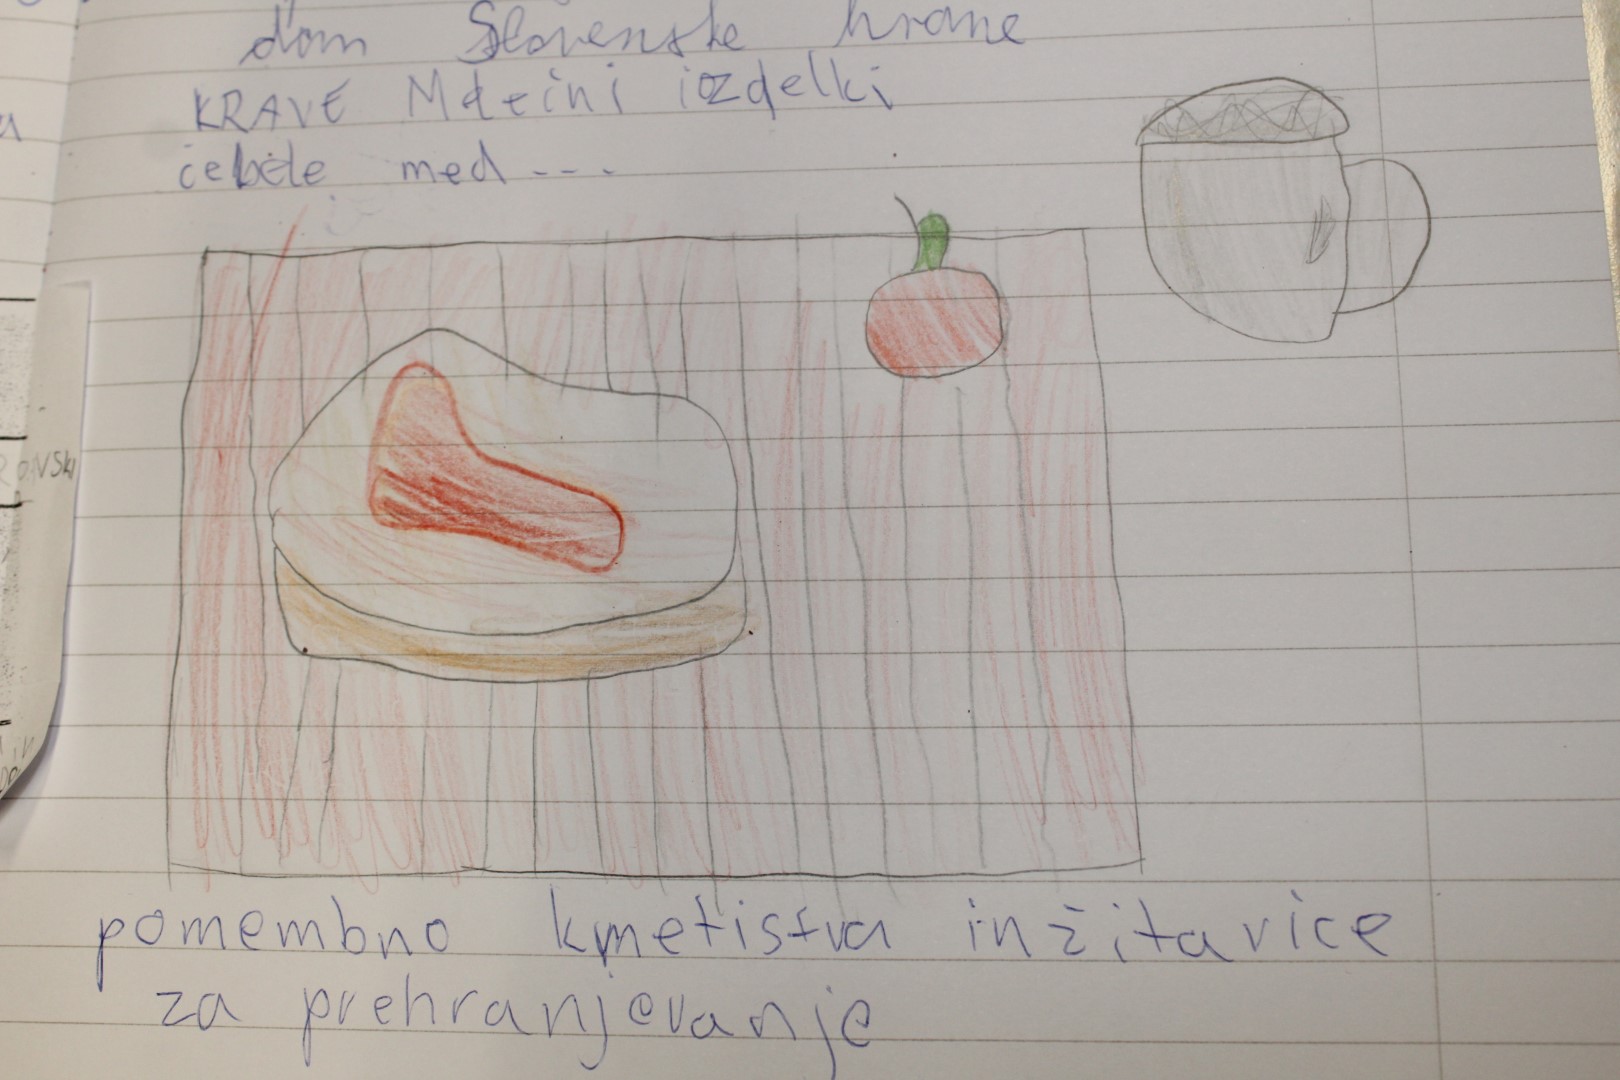 dom Slovenske hrane
KRAVE Mlečni izdelki
čebele med ---
pomembno kmetistva in žitavice
za prehranjevanje